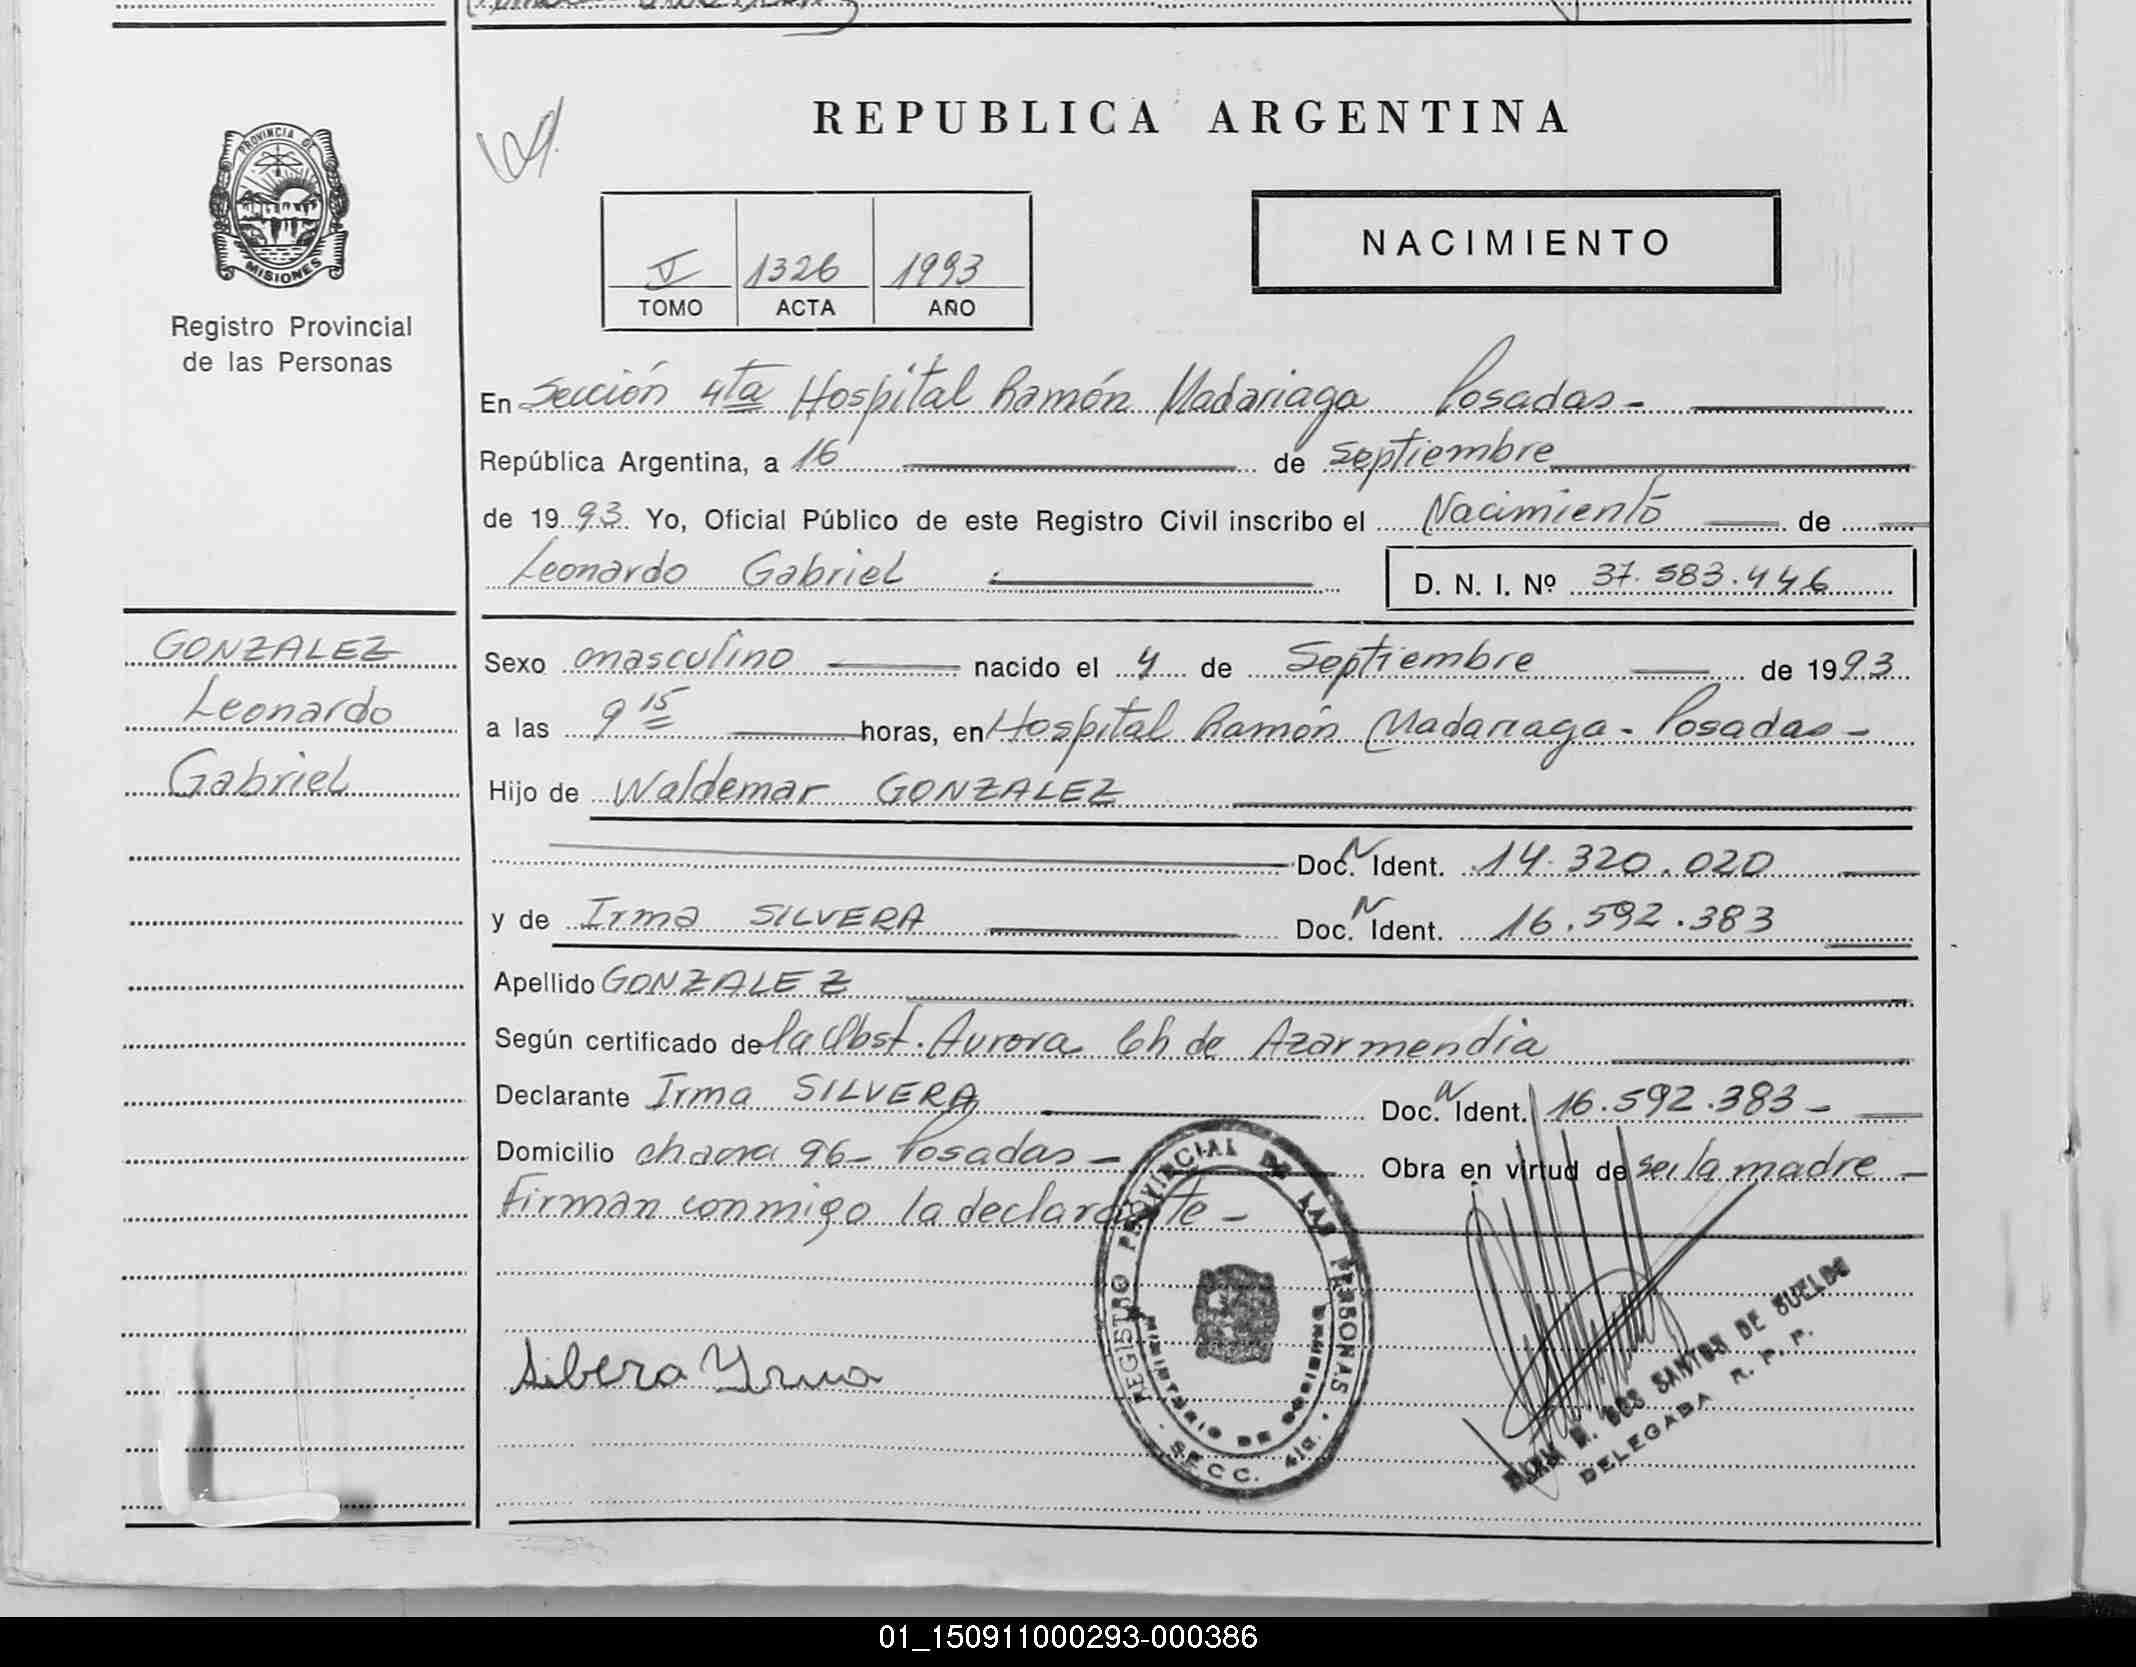 REPUBLICA ARGENTINA
PROVINCIA DE
MISIONES
Registro Provincial
de las Personas
V 1326 1993
TOMO ACTA AÑO
NACIMIENTO
En Sección 4ta Hospital Ramón Madariaga Posadas-
República Argentina, a 16 de septiembre
de 1993 Yo, Oficial Público de este Registro Civil inscribo el Nacimiento de
Leonardo Gabriel D. N. I. Nº 37.583.446
GONZALEZ
Leonardo
Gabriel
Sexo masculino nacido el 4 de Septiembre de 1993
a las 9 15 horas, en Hospital Ramón Madariaga - Posadas -
Hijo de Waldemar GONZALEZ
Doc. N Ident. 14.320.020
y de Irma SILVERA Doc. N Ident. 16.592.383
Apellido GONZALEZ
Según certificado de la Obst. Aurora Ch de Azarmendia
Declarante Irma SILVERA Doc. N Ident. 16.592.383 -
Domicilio chacra 96- Posadas - Obra en virtud de ser la madre -
Firman conmigo la declarante -
REGISTRO PROVINCIAL DE LAS PERSONAS
MINISTERIO DE GOBIERNO
SECC. 4ta.
Sibera Yrma
DOS SANTOS DE SUELDO
DELEGADA R. P. P.
01_150911000293-000386